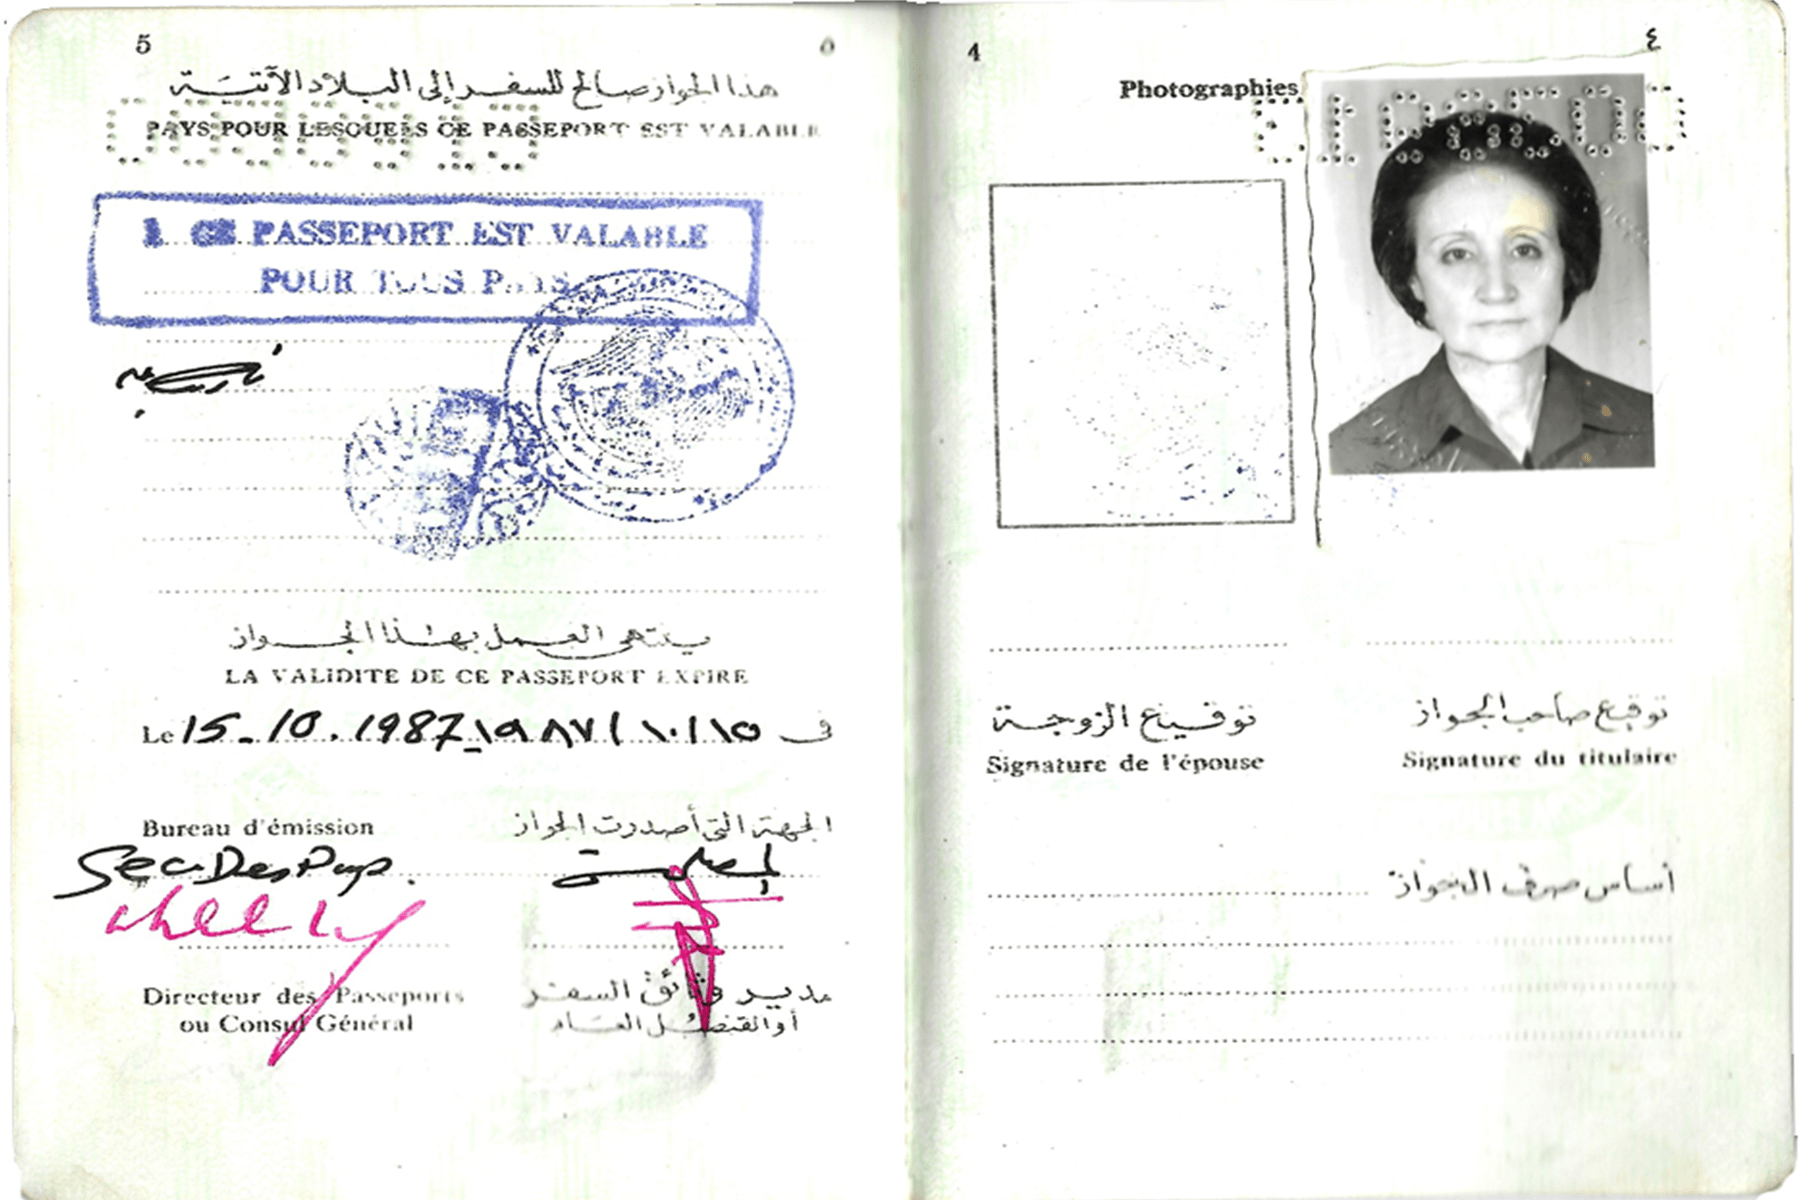 5
٥
هذا الجواز صالح للسفر إلى البلاد الآتية
PAYS POUR LESQUELS CE PASSEPORT EST VALABLE
CE PASSEPORT EST VALABLE
POUR TOUS PAYS
ينتهى العمل بهذا الجواز
LA VALIDITE DE CE PASSEPORT EXPIRE
Le 15_10.1987 ١٩٨٧/١٠/١٥ فى
Bureau d'émission الجهة التى أصدرت الجواز
Directeur des Passeports مدير وثائق السفر
ou Consul Général أو القنصل العام
4
٤
Photographies
توقيع الزوجة توقيع صاحب الجواز
Signature de l'épouse Signature du titulaire
أساس صرف الجواز